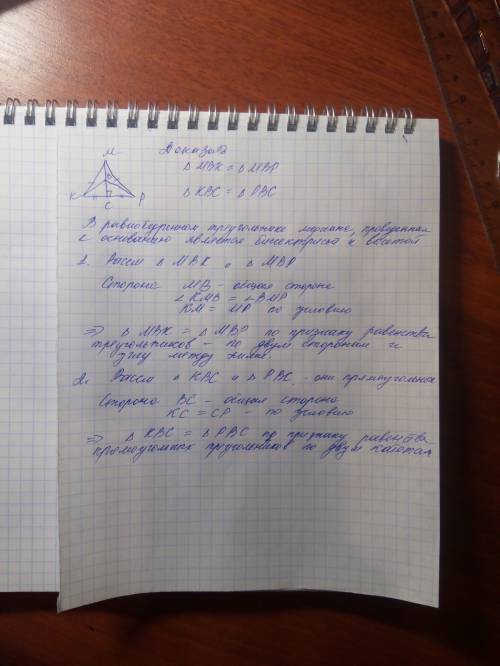 M
Доказать
Δ MBK = Δ MBP
K
B
P
C
Δ KBC = Δ PBC
В равнобедренном треугольнике медиана, проведенная
к основанию является биссектрисой и высотой
1. Рассм Δ MBK и Δ MBP
Сторона MB - общая сторона
∠ KMB = ∠ BMP
KM = MP по условию
⇒ Δ MBK = Δ MBP по признаку равенства
треугольников - по двум сторонам и
углу между ними.
2. Рассм Δ KBC и Δ PBC - они прямоугольные
Сторона BC - общая сторона
KC = CP - по условию
⇒ Δ KBC = Δ PBC по признаку равенства
прямоугольных треугольников по двум катетам